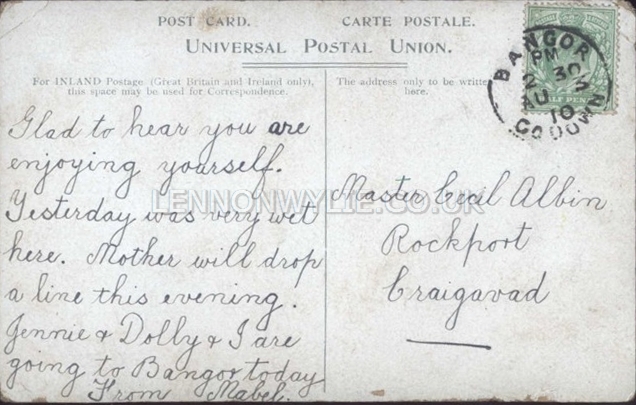 POST CARD. CARTE POSTALE.
UNIVERSAL POSTAL UNION.
For INLAND Postage (Great Britain and Ireland only),
this space may be used for Correspondence.
The address only to be written
here.
BANGOR
PM
2 30
AU 3
10
CO DOWN
HALF PENNY
Glad to hear you are
enjoying yourself.
Yesterday was very wet
here. Mother will drop
a line this evening.
Jennie & Dolly & I are
going to Bangor today
From Mabel.
Master Cecil Albin
Rockport
Craigavad
LENNONWYLIE.CO.UK